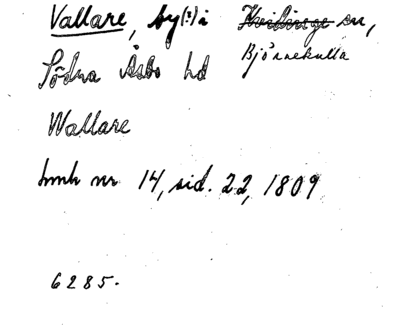 Vallare, by(?) i Kvidinge sn,
Björnekulla
Södra Åsbo hd
Wallare
hmk nr 14, sid. 22, 1809
6285.